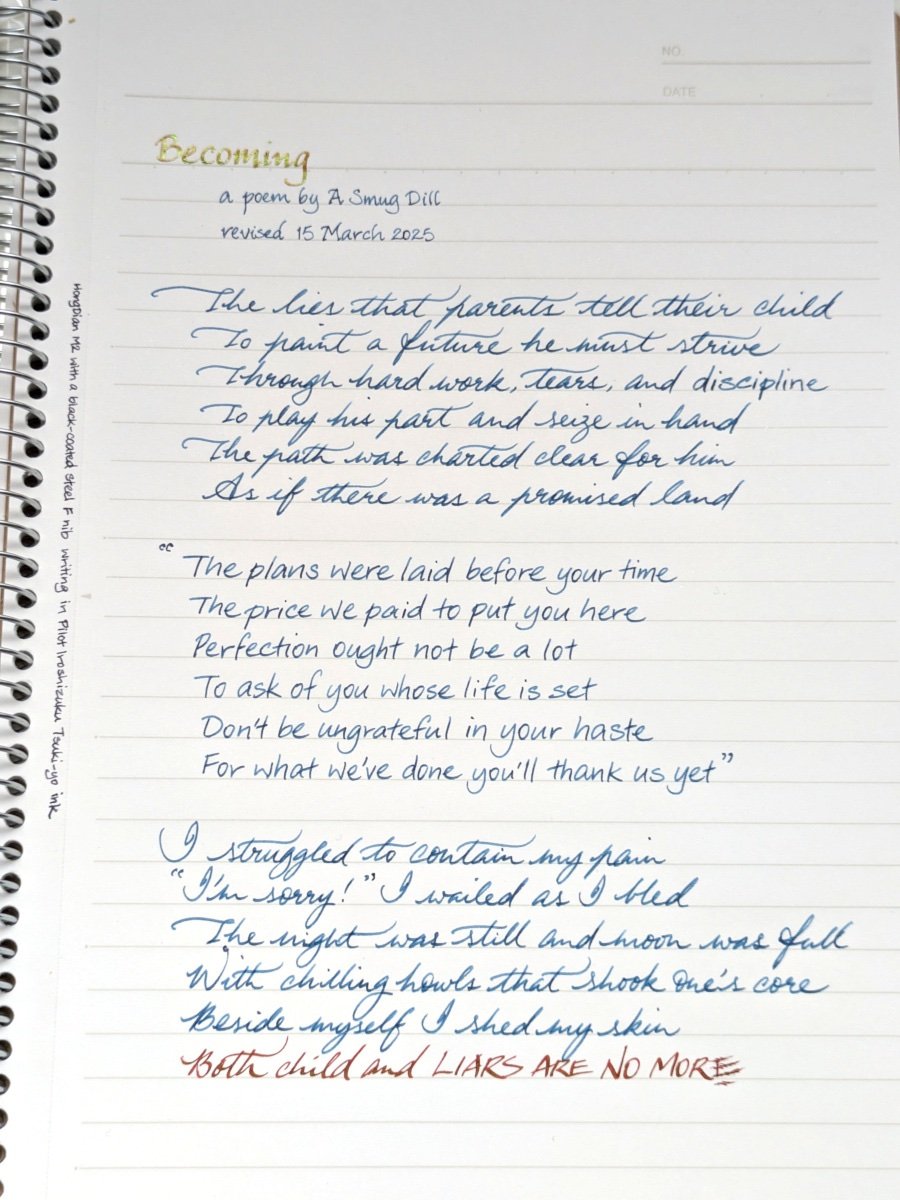 NO.
DATE
Becoming
a poem by A Smug Dill
revised 15 March 2025
The lies that parents tell their child
To paint a future he must strive
Through hard work, tears, and discipline
To play his part and seize in hand
The path was charted clear for him
As if there was a promised land
“The plans were laid before your time
The price we paid to put you here
Perfection ought not be a lot
To ask of you whose life is set
Don't be ungrateful in your haste
For what we've done you'll thank us yet”
I struggled to contain my pain
“I'm sorry!” I wailed as I bled
The night was still and moon was full
With chilling howls that shook one's core
Beside myself I shed my skin
Both child and LIARS ARE NO MORE
HongDian M2 with a black-coated steel F nib writing in Pilot Iroshizuku Tsuki-yo ink